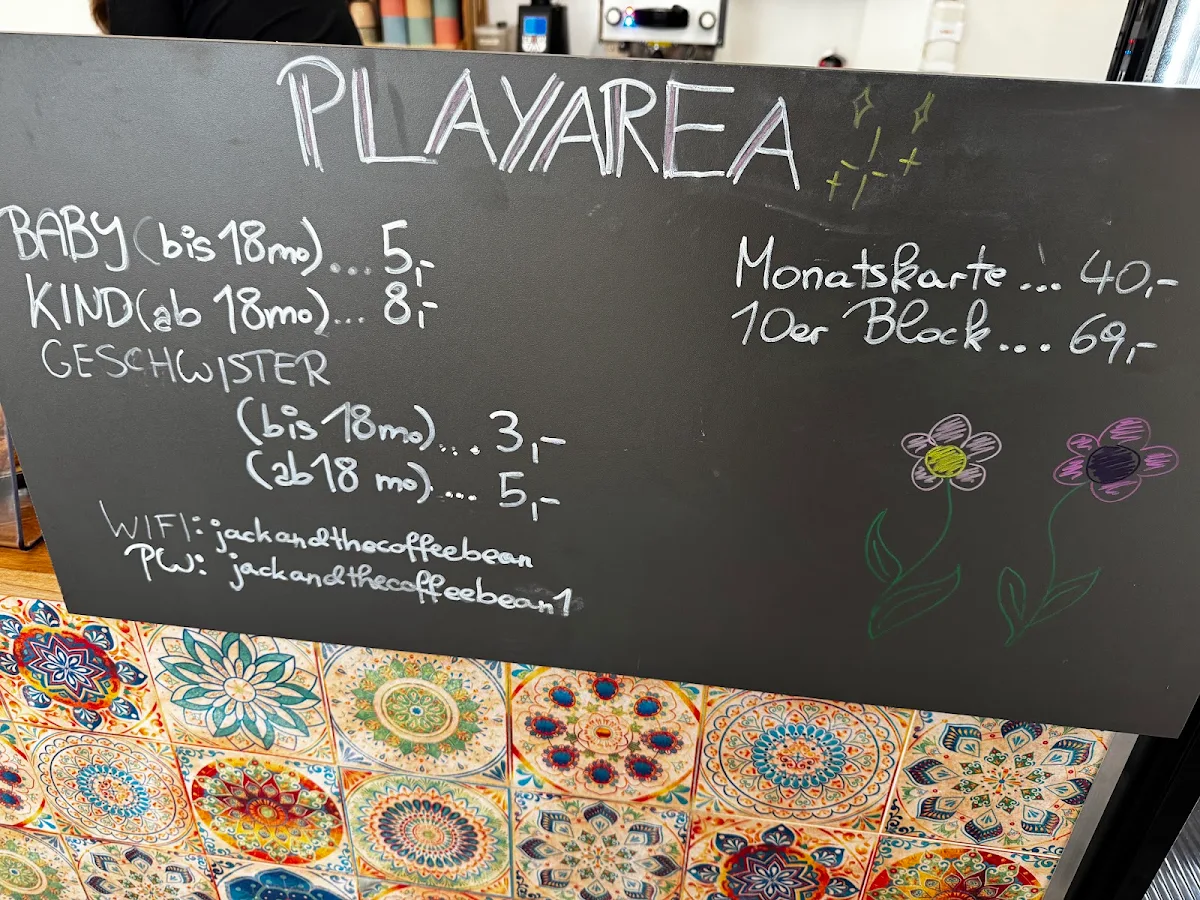 PLAYAREA
BABY (bis 18mo)... 5,-
KIND (ab 18mo)... 8,-
GESCHWISTER
(bis 18mo)... 3,-
(ab 18 mo)... 5,-
WIFI: jackandthecoffeebean
PW: jackandthecoffeebean1
Monatskarte... 40,-
10er Block... 69,-